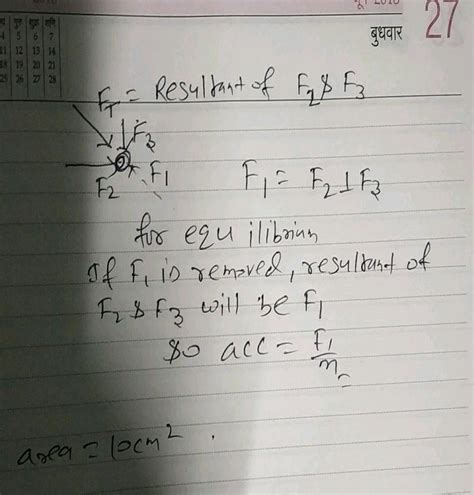 गुरु शुक्र शनि
4 5 6 7
11 12 13 14
18 19 20 21
25 26 27 28
बुधवार 27
F_T = Resultant of F₂ & F₃
F₃
F₂ F₁
F₁ = F₂ ⊥ F₃
for equilibrium
If F₁ is removed, resultant of
F₂ & F₃ will be F₁
so acc = F₁/m
area = 10cm² .